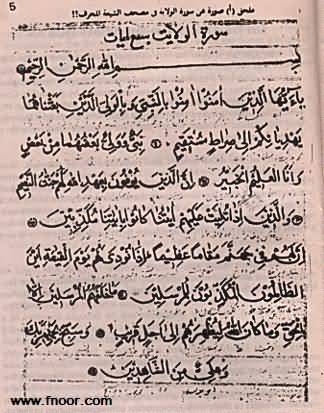 5
صورة عن سورة الولاية في مصحف الشيعة المحرف !!
سورة الولاية سبع آيات
بسم الله الرحمن الرحيم
يا أيها الذين آمنوا آمنوا بالنبي وبالولي الذين بعثناهما
يهديانكم إلى صراط مستقيم نبي وولي بعضهما من بعض
وأنا العليم الخبير إن الذين يوفون بعهد الله لهم جنت النعيم
والذين إذا تليت عليهم آيتنا كانوا بآيتنا مكذبين
إن لهم في جهنم مقاما عظيما إذا نودي لهم يوم القيمة أين
الظالمون المكذبون للمرسلين ما خلفهم المرسلين إلا
بالحق وما كان الله ليظهرهم إلى أجل قريب وسبح بحمد ربك
وعلي من الشاهدين
www.fnoor.com